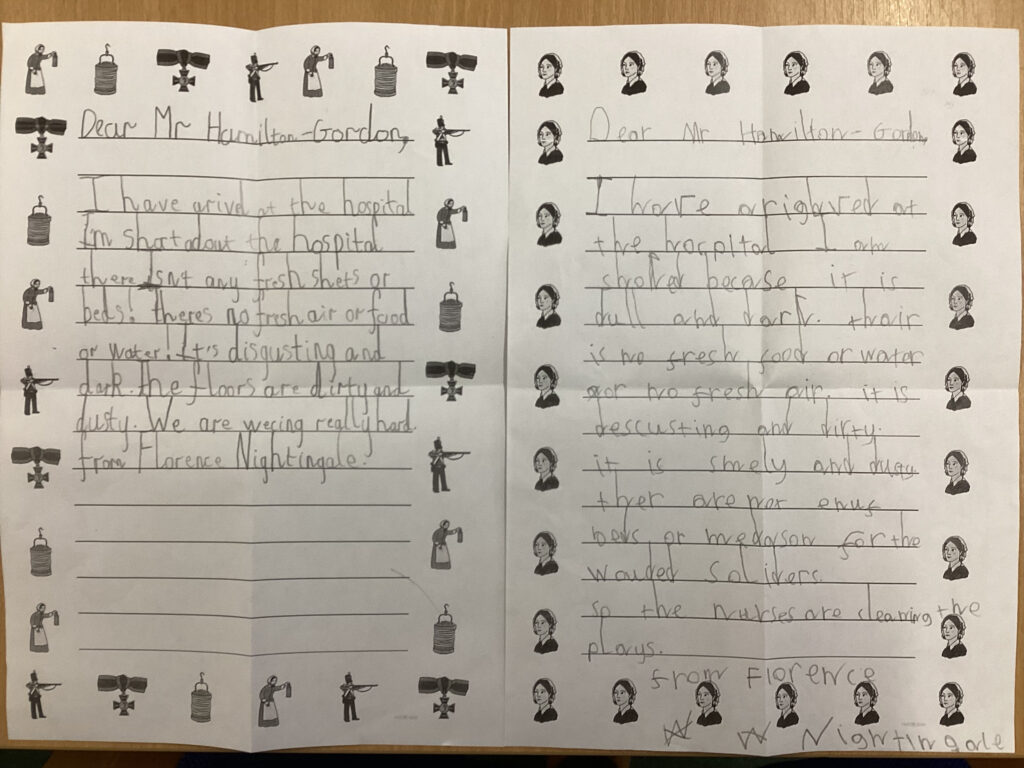 Dear Mr Hamilton-Gordon,
I have arivd at the hospital
I'm shoctadout the hospital
there isnt any fresh shets or
beds! theres no fresh air or food
or water! It's disgusting and
dark. the floors are dirty and
dusty. We are wecing really hard
from Florence Nightingale.
Dear Mr Hamilton-Gordon,
I have arighved at
the hospital I am
shoked becase it is
dull and dark. thair
is no fresh food or water
nor no fresh air. it is
descusting and dirty.
it is smely and dusty
ther are not enuf
beds or medason for the
wouded Soliders
so the nurses are cleaning the
plays.
from Florence
Nightingale